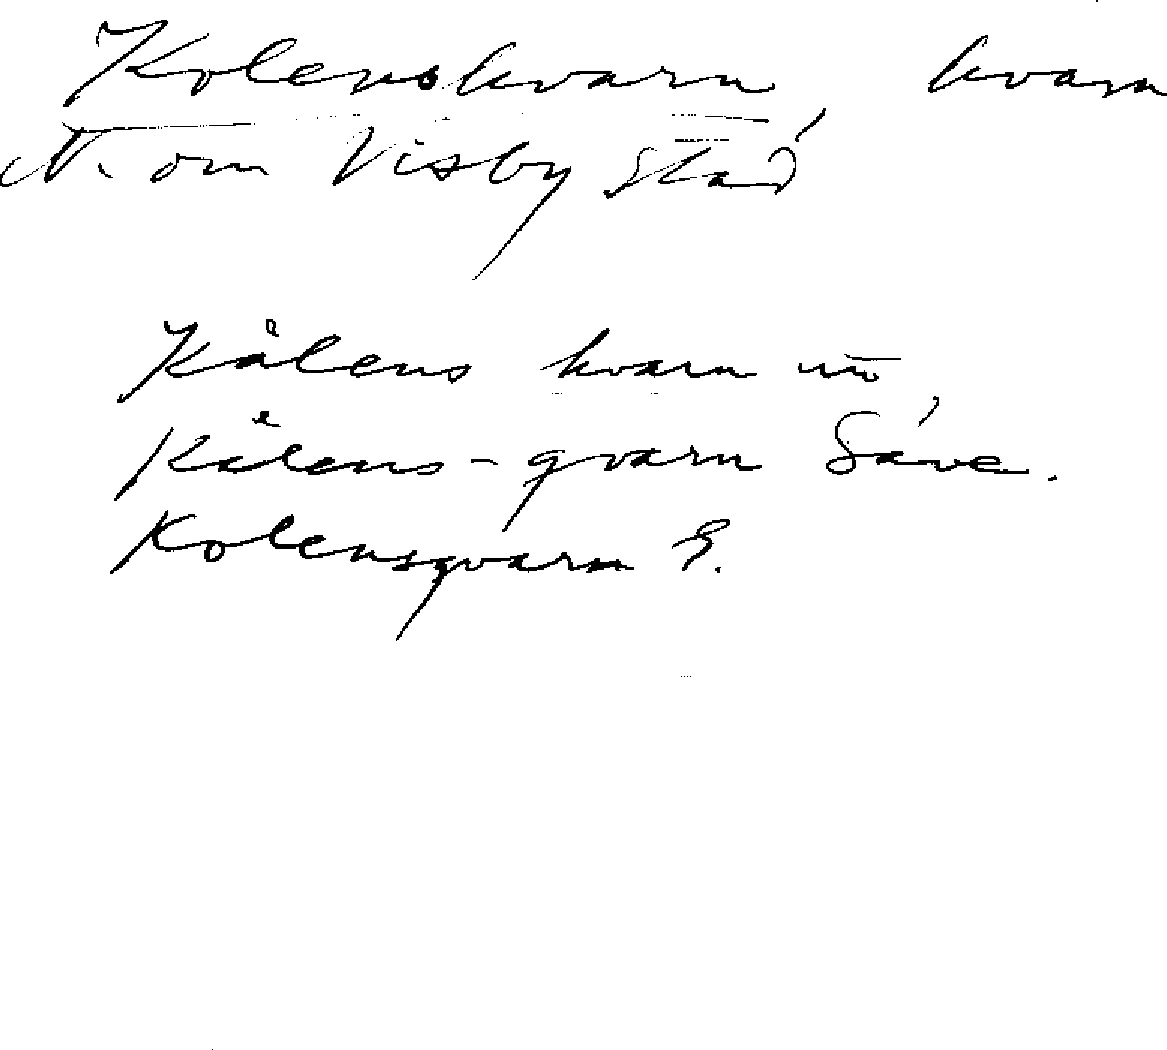 Kolenskvarn, kvarn
N. om Visby stad
Kålens kvarn
Kålens-qvarn Säve.
Kolensqvarn S.